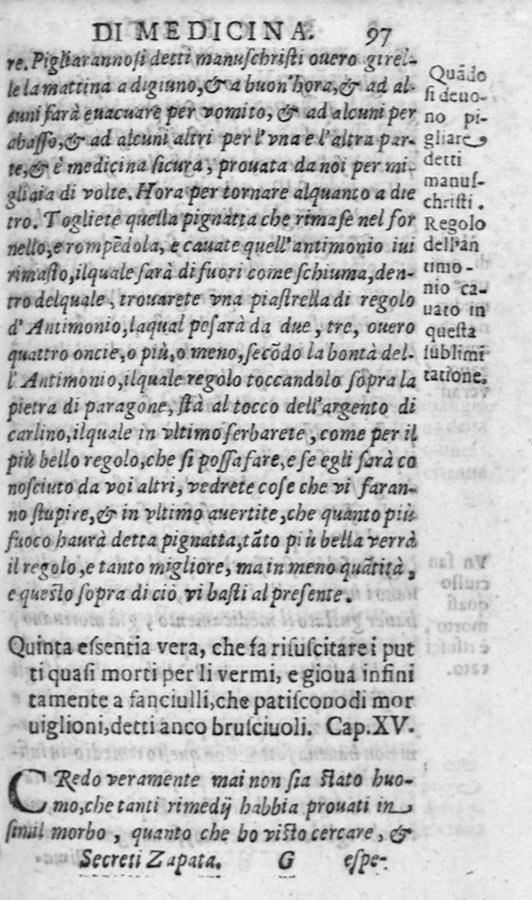 DI MEDICINA. 97
re. Pigliarannosi detti manuschristi ouero girel-
le la mattina a digiuno, & a buon'hora, & ad al-
cuni farà euacuare per vomito, & ad alcuni per
abasso, & ad alcuni altri per l'vna e l'altra par-
te, & è medicina sicura, prouata da noi per mi-
gliaia di volte. Hora per tornare alquanto a die
tro. Togliete quella pignatta che rimase nel for
nello, e rompēdola, e cauate quell'antimonio iui
rimasto, ilquale sarà di fuori come schiuma, den-
tro delquale, trouarete vna piastrella di regolo
d'Antimonio, laqual pesarà da due, tre, ouero
quattro oncie, o più, o meno, secōdo la bontà del-
l'Antimonio, ilquale regolo toccandolo sopra la
pietra di paragone, stà al tocco dell'argento di
carlino, ilquale in vltimo serbarete, come per il
più bello regolo, che si possa fare, e se egli sarà co
nosciuto da voi altri, vedrete cose che vi faran-
no stupire, & in vltimo auertite, che quanto più
fuoco haurà detta pignatta, tāto più bella verrà
il regolo, e tanto migliore, ma in meno quātità,
e questo sopra di ciò vi basti al presente.
Quādo
si deuo-
no pi-
gliare
detti
manus-
christi.
Regolo
dell'an
timo-
nio ca-
uato in
questa
sublimi
tatione.
Quinta essentia vera, che fa risuscitare i put
ti quasi morti per li vermi, e gioua infini
tamente a fanciulli, che patiscono di mor
uiglioni, detti anco brusciuoli. Cap. XV.
CRedo veramente mai non sia stato huo-
mo, che tanti rimedij habbia prouati in
simil morbo, quanto che ho visto cercare, &
Secreti Zapata. G espe-